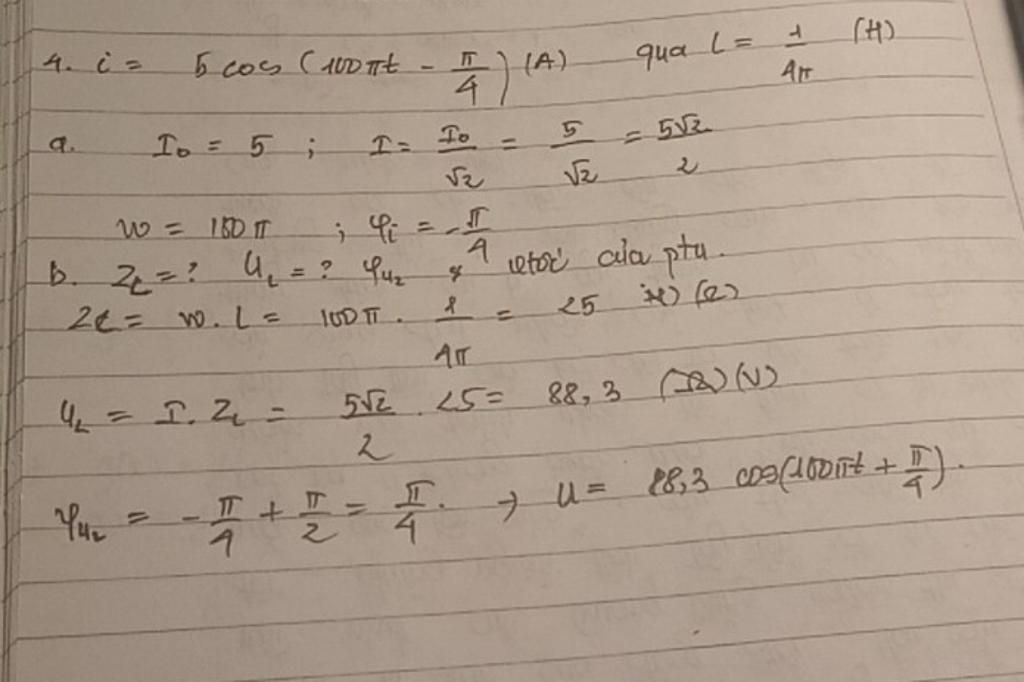 4. i = 5 cos (100πt - π/4) (A) qua L = 1/4π (H)
a. I₀ = 5 ; I = I₀/√2 = 5/√2 = 5√2/2
w = 100π ; φi = -π/4
b. ZL = ? UL = ? φuL của ptu.
ZL = w. L = 100π . 1/4π = 25 (Ω)
UL = I. ZL = 5√2/2 . 25 = 88,3 (V)
φuL = -π/4 + π/2 = π/4 . → u = 88,3 cos(100πt + π/4) .